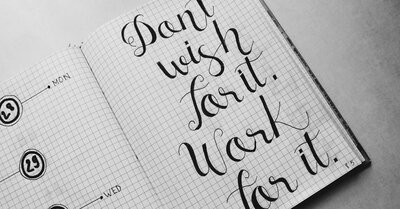 MON
28
29
WED
Dont
wish
for it.
Work
for it.